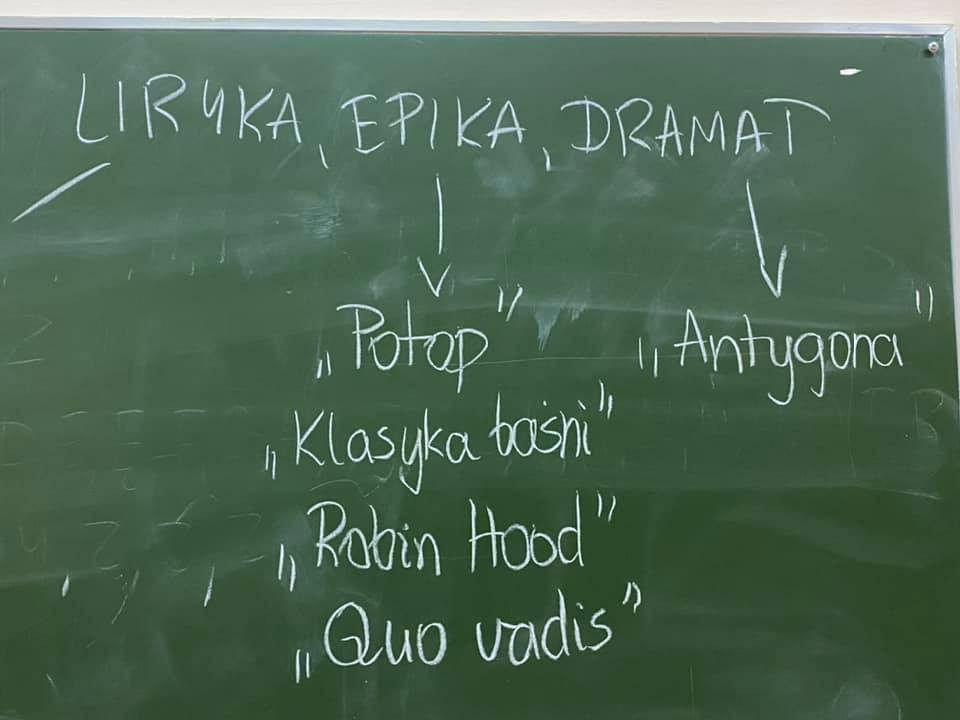 LIRYKA, EPIKA, DRAMAT
„Potop” „Antygona”
„Klasyka baśni”
„Robin Hood”
„Quo vadis”